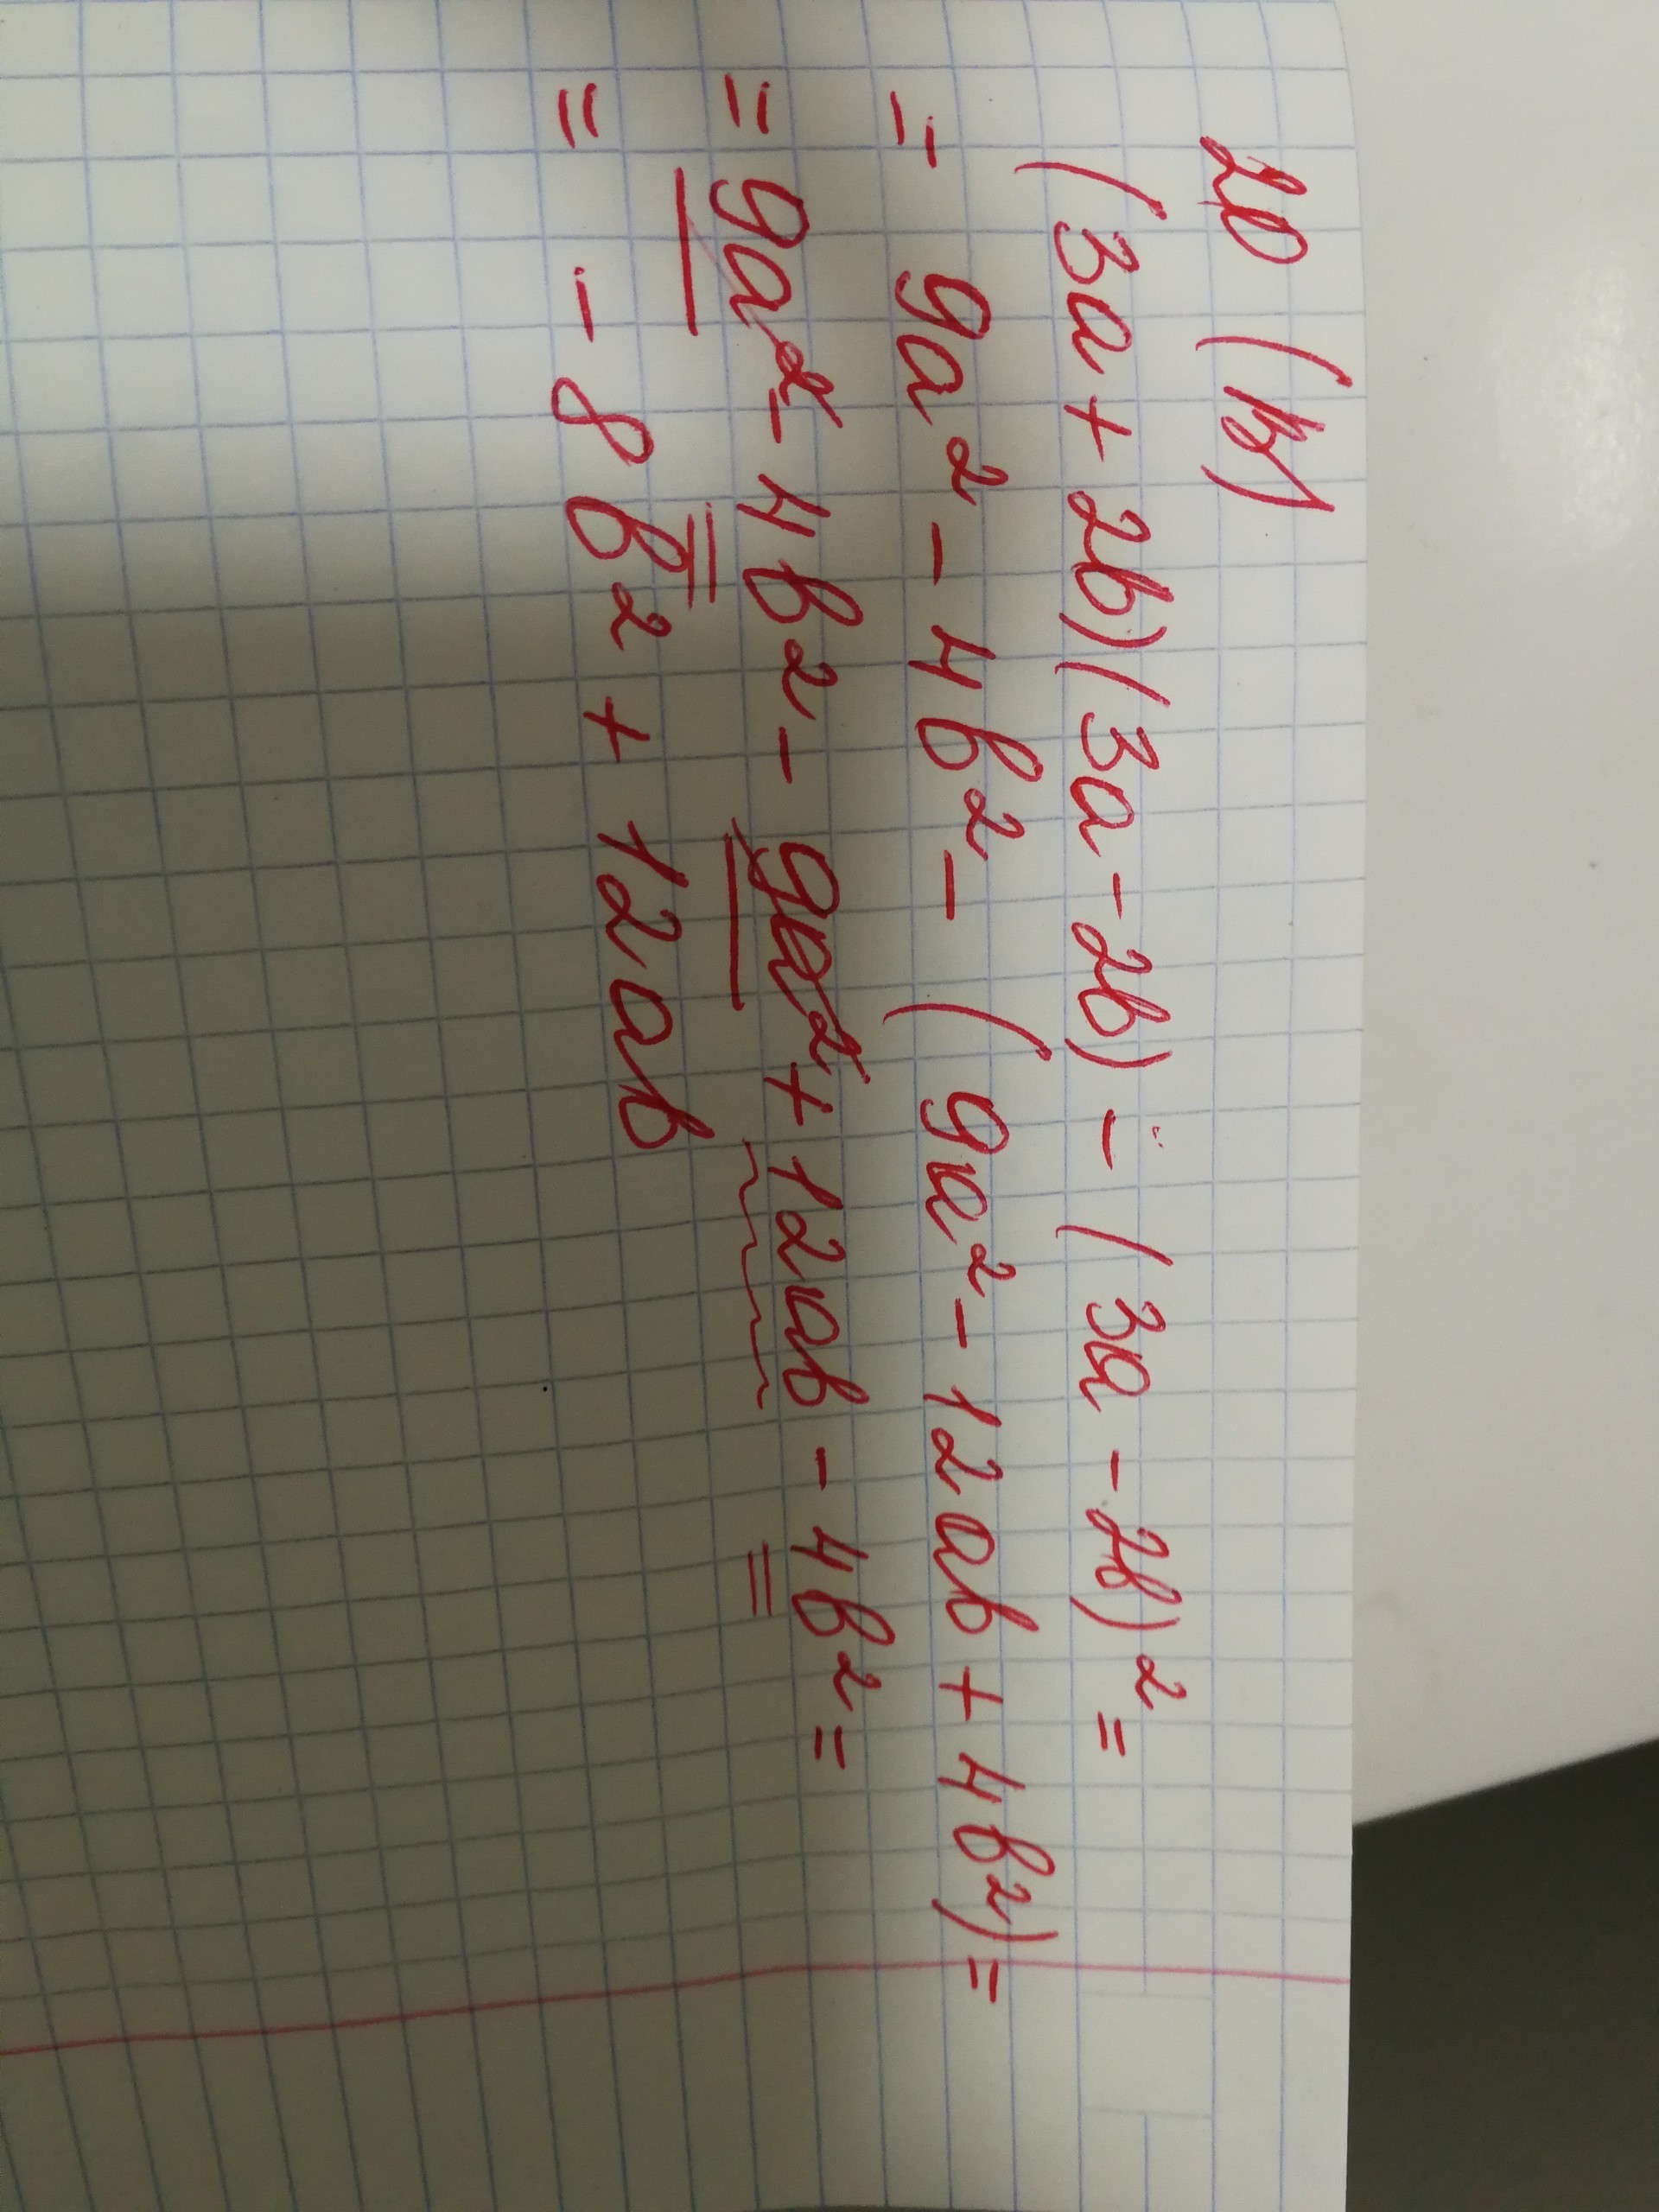 20 (в)
(3a + 2b)(3a - 2b) - (3a - 2b)² =
= 9a² - 4b² - (9a² - 12ab + 4b²) =
= 9a² - 4b² - 9a² + 12ab - 4b² =
= - 8b² + 12ab